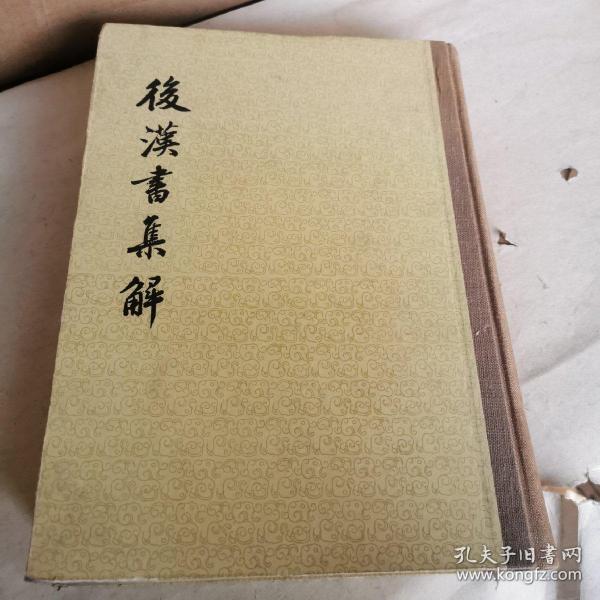 後漢書集解
孔夫子旧書网
www.kongfz.com